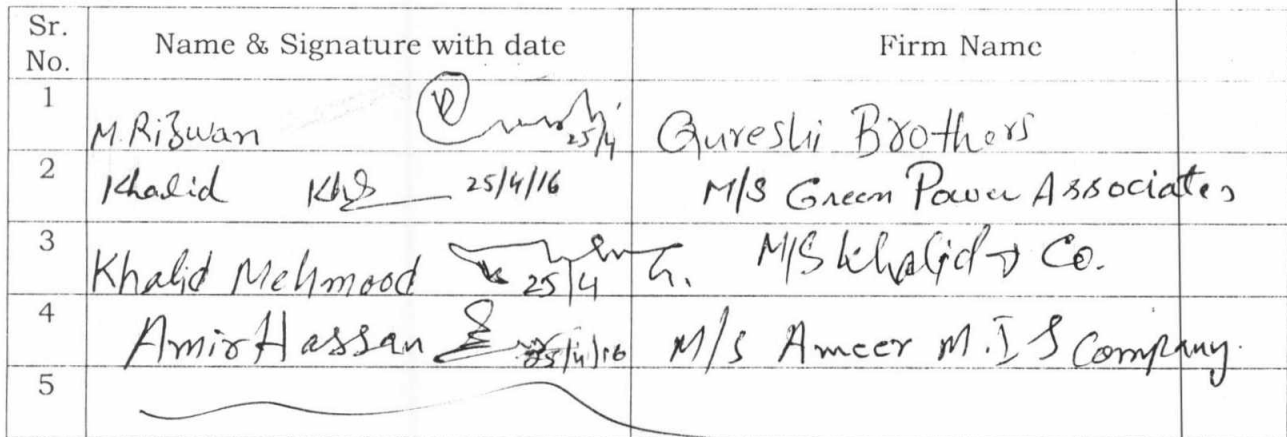 Sr. No. Name & Signature with date Firm Name
1 M.Rizwan 25/4 Qureshi Brothers
2 Khalid 25/4/16 M/S Green Power Associates
3 Khalid Mehmood 25/4 M/S Khalid & Co.
4 Amir Hassan 25/4/16 M/s Ameer M.I S Company.
5